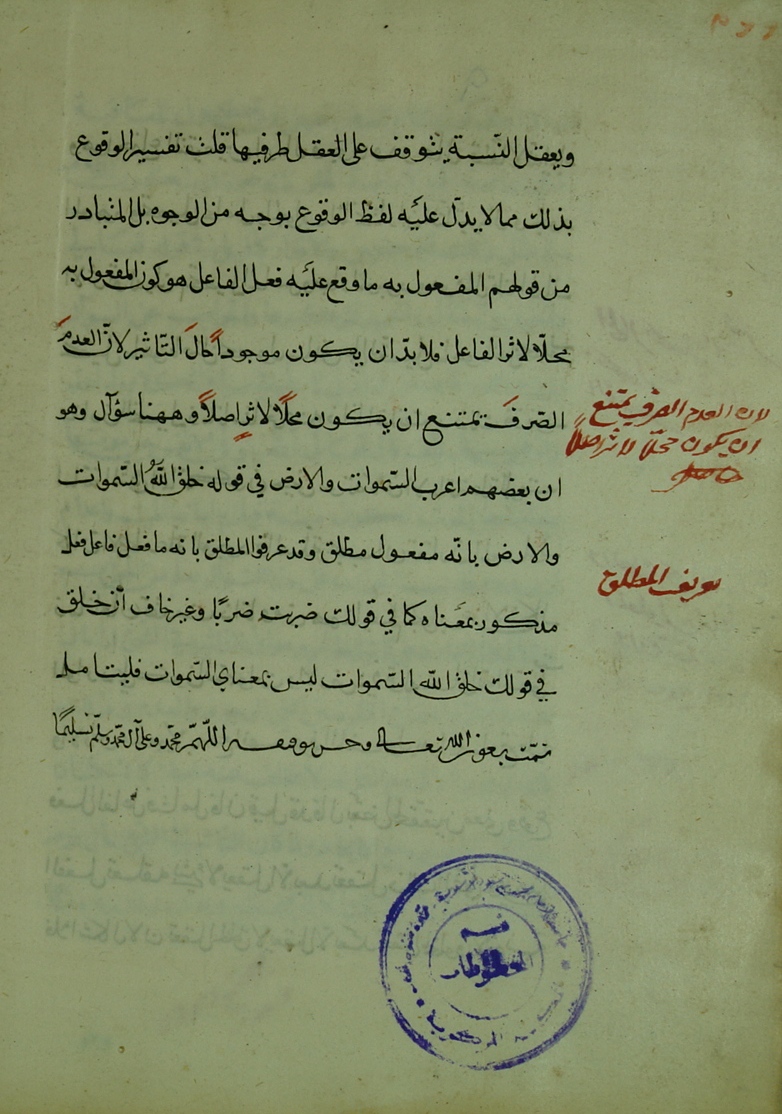 ويعقل النسبة يتوقف على العقل طرفيها قلت تفسير الوقوع
بذلك مما لا يدل عليه لفظ الوقوع بوجه من الوجوه بل المتبادر
من قولهم المفعول به ما وقع عليه فعل الفاعل هو كون المفعول به
محلّا لاثر الفاعل فلا بدّ ان يكون موجوداً حالَ التّاثير لانّ العدمَ
الصّرفَ يمتنع ان يكون محلّاً لاثرٍ اصلاً وههنا سؤال وهو
ان بعضهم اعرب السّموات والارض في قوله خلق اللّٰهُ السّموات
والارض بانّه مفعول مطلق وقد عرفوا المطلق بانه ما فعل فاعل فعل
مذكور بمعناه كما في قولك ضربت ضربًا وغير خاف أنّ خلق
في قولك خلق اللّٰه السّموات ليس بمعناي السّموات فليتامل
تمّت بعون اللّٰه تعالى وحسن توفيقه اللّهمّ محمّد وعلى آل محمّد وسلّم تسليمًا
لان العدم الصرف يمتنع
ان يكون محلّا لاثر اصلاً
تعريف المطلق
قسم
المخطوطات